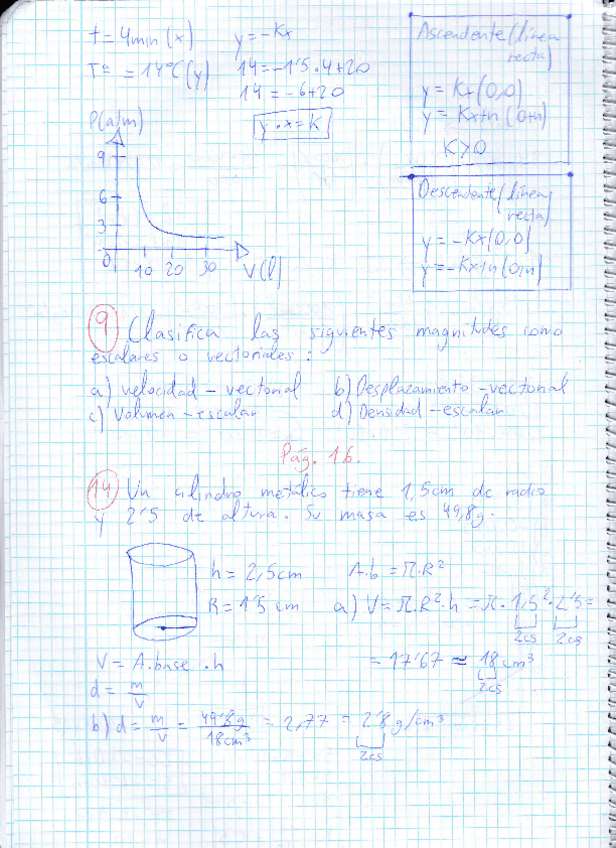 t = 4min (x)
y = -Kx
Tª = 14ºC (y)
14 = -1'5 · 4 + 20
14 = -6 + 20
y · x = K
Ascendente (línea
recta)
y = Kx (0,0)
y = Kx+n (0+n)
K > 0
Descendente (línea
recta)
y = -Kx (0,0)
y = -Kx+n (0,n)
P(atm)
9
6
3
0
10 20 30
V(l)
9 Clasifica las siguientes magnitudes como
escalares o vectoriales:
a) velocidad - vectorial
b) Desplazamiento - vectorial
c) Volumen - escalar
d) Densidad - escalar
Pág. 16.
14 Un cilindro metálico tiene 1,5cm de radio
y 2'5 de altura. Su masa es 49,8g.
h = 2,5cm
A.b = π.R²
R = 1'5 cm
a) V = π.R².h = π. 1,5² · 2'5 =
2cs 2cs
V = A.base . h
= 17'67 ≈ 18 cm³
2cs
d = m/v
b) d = m/v = 49'8g/18cm³ = 2,77 = 2'8 g/cm³
2cs